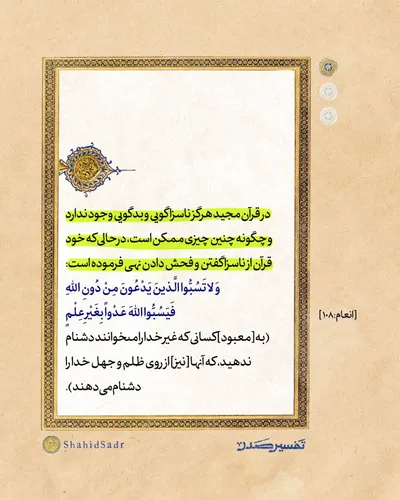 در قرآن مجید هرگز ناسزاگویی و بدگویی وجود ندارد
و چگونه چنین چیزی ممکن است، در حالی که خود
قرآن از ناسزا گفتن و فحش دادن نهی فرموده است:
وَ لا تَسُبُّوا الَّذينَ يَدْعُونَ مِنْ دُونِ اللهِ
فَيَسُبُّوا اللهَ عَدْواً بِغَيْرِ عِلْمٍ
[انعام:۱۰۸]
(به [معبود] کسانی که غیر خدا را می‌خوانند دشنام
ندهید، که آنها [نیز] از روی ظلم و جهل خدا را
دشنام می‌دهند).
تفسیر صدر
ShahidSadr